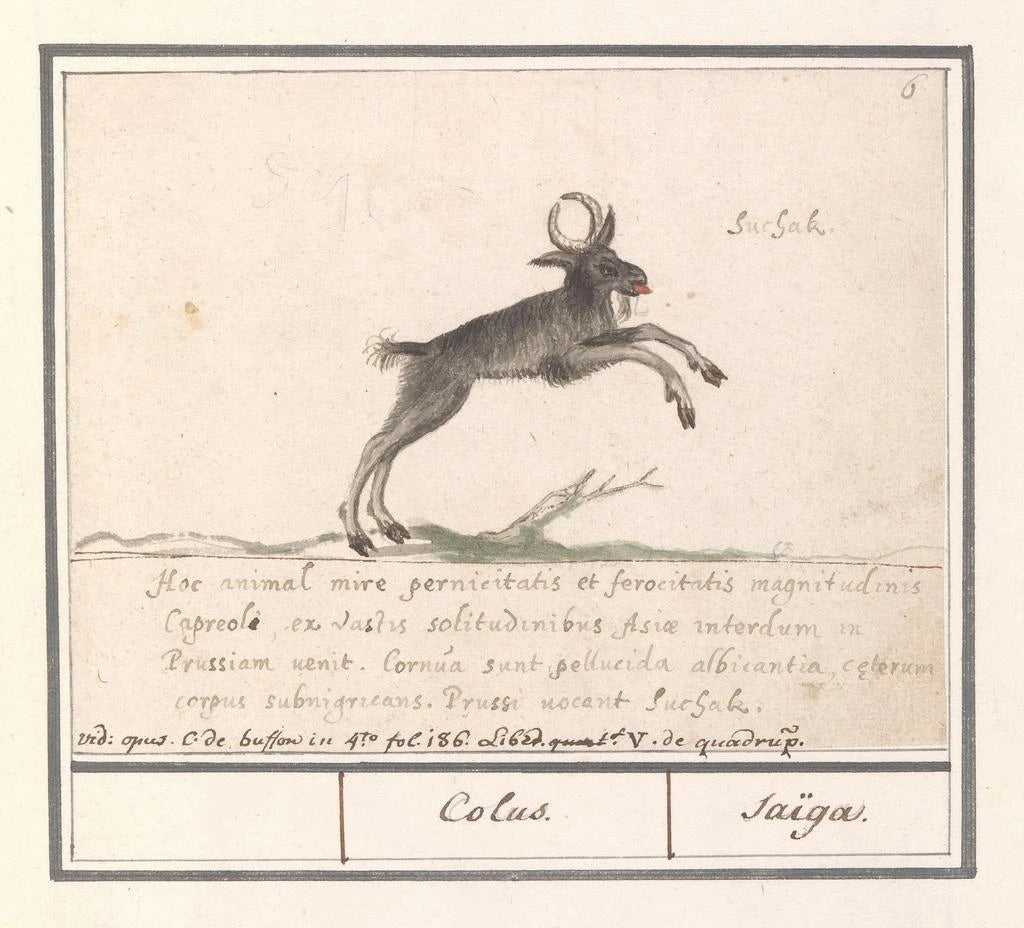 6
Suchak.
Hoc animal mire pernicitatis et ferocitatis magnitudinis
Capreoli, ex vastis solitudinibus Asiæ interdum in
Prussiam venit. Cornua sunt pellucida albicantia, cęterum
corpus subnigricans. Prussi uocant Suchak.
vid: opus. C. de buffon in 4to fol. 186. Libed. V. de quadrup.
Colus. Saïga.